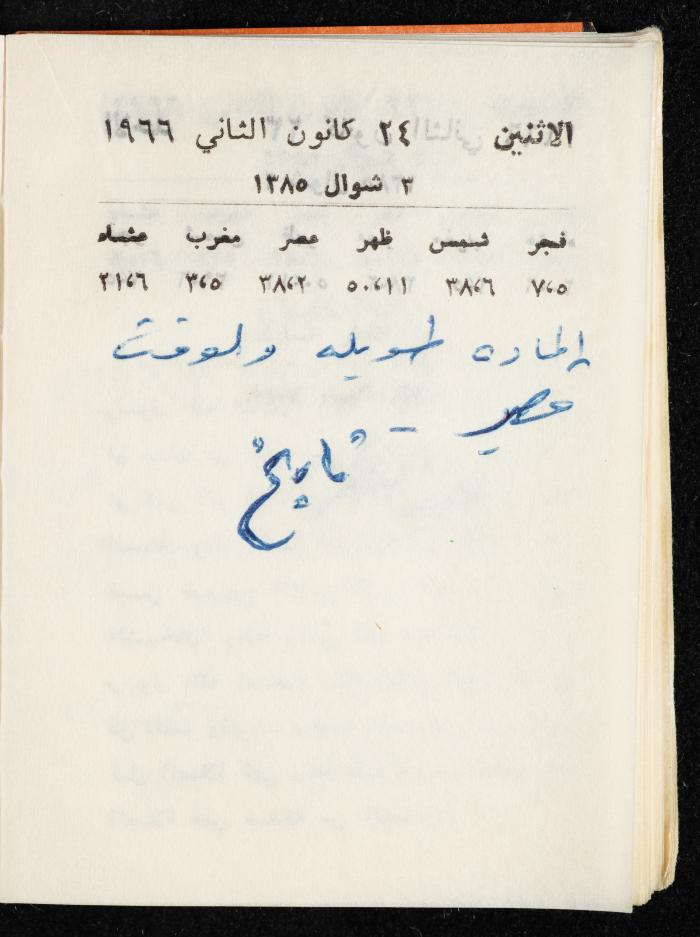 الاثنين ٢٤ كانون الثاني ١٩٦٦
٣ شوال ١٣٨٥
فجر شمس ظهر عصر مغرب عشاء
٥،٧ ٦،٣٨ ١١،٥٠ ٢،٣٨ ٥،٣ ٦،٢١
الماده طويله والوقت
قصير - تاريخ